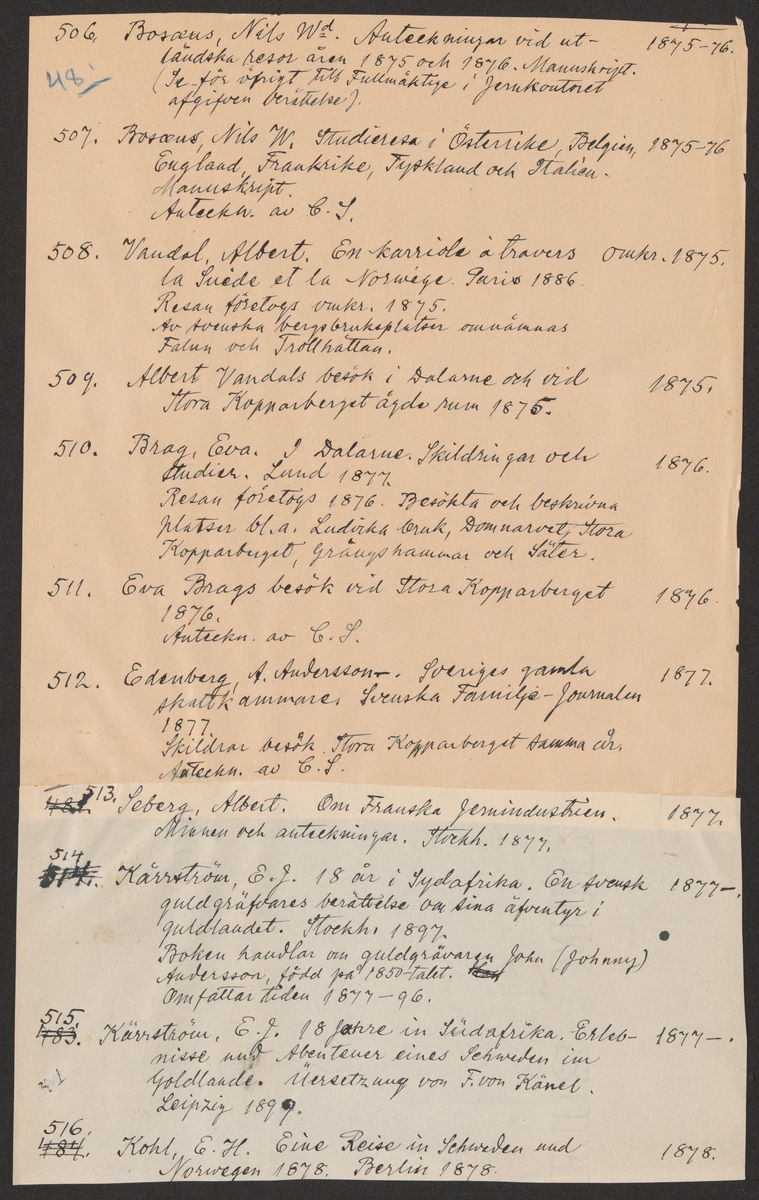 506. Bosæus, Nils Wd. Anteckningar vid ut- 1875-76.
ländska resor åren 1875 och 1876. Manuskript.
48:-
(Se för övrigt till Fullmäktige i Jernkontoret
afgifven berättelse).
507. Bosæus, Nils W. Studieresa i Österrike, Belgien, 1875-76
England, Frankrike, Tyskland och Italien.
Manuskript.
Anteckn. av C. S.
508. Vandal, Albert. En karriole à travers omkr. 1875.
la Suède et la Norwège. Paris 1886.
Resan företogs omkr. 1875.
Av svenska bergsbruksplatser omnämnas
Falun och Trollhättan.
509. Albert Vandals besök i Dalarne och vid 1875.
Stora Kopparberget ägde rum 1875.
510. Brag, Eva. I Dalarne. Skildringar och 1876.
studier. Lund 1877.
Resan företogs 1876. Besökta och beskrivna
platser bl.a. Ludvika bruk, Domnarvet, Stora
Kopparberget, Grängshammar och Säter.
511. Eva Brags besök vid Stora Kopparberget 1876.
1876.
Anteckn. av C. S.
512. Edenberg, A. Andersson-. Sveriges gamla 1877.
skattkammare. Svenska Familje-Journalen
1877.
Skildrar besök Stora Kopparberget samma år.
Anteckn. av C. S.
481. 513. Seberg, Albert. Om Franska Jernindustrien. 1877.
Minnen och anteckningar. Stockh. 1877.
514
514. Kärrström, E. J. 18 år i Sydafrika. En svensk 1877-.
guldgräfvares berättelse om sina äfventyr i
guldlandet. Stockh. 1897.
Boken handlar om guldgrävaren John (Johnny)
Andersson, född på 1850-talet.
Omfattar tiden 1877-96.
515
483. Kärrström, E. J. 18 Jahre in Südafrika. Erleb- 1877-.
nisse und Abenteuer eines Schweden im
Goldlande. Üersetzung von F. von Känel.
Leipzig 1899.
516.
484. Kohl, E. H. Eine Reise in Schweden und 1878.
Norwegen 1878. Berlin 1878.